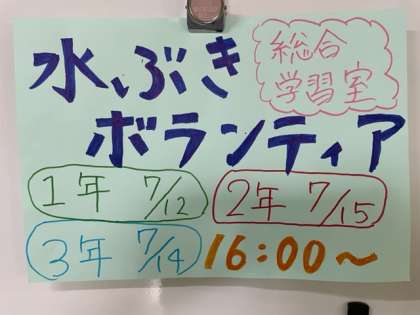 水ぶき
総合
学習室
ボランティア
1年 7/12
2年 7/15
3年 7/14
16:00〜